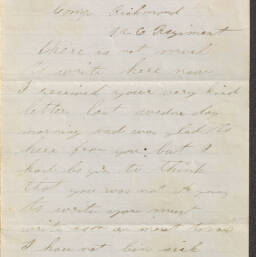 Camp Richmond
N C Regiment
There is not much
to write here now
I received your very kind
letter last wednesday
morning and was glad to
here from you but I
had begin to think
that you was not a going
to write you must
write soon
I hav not bin sick